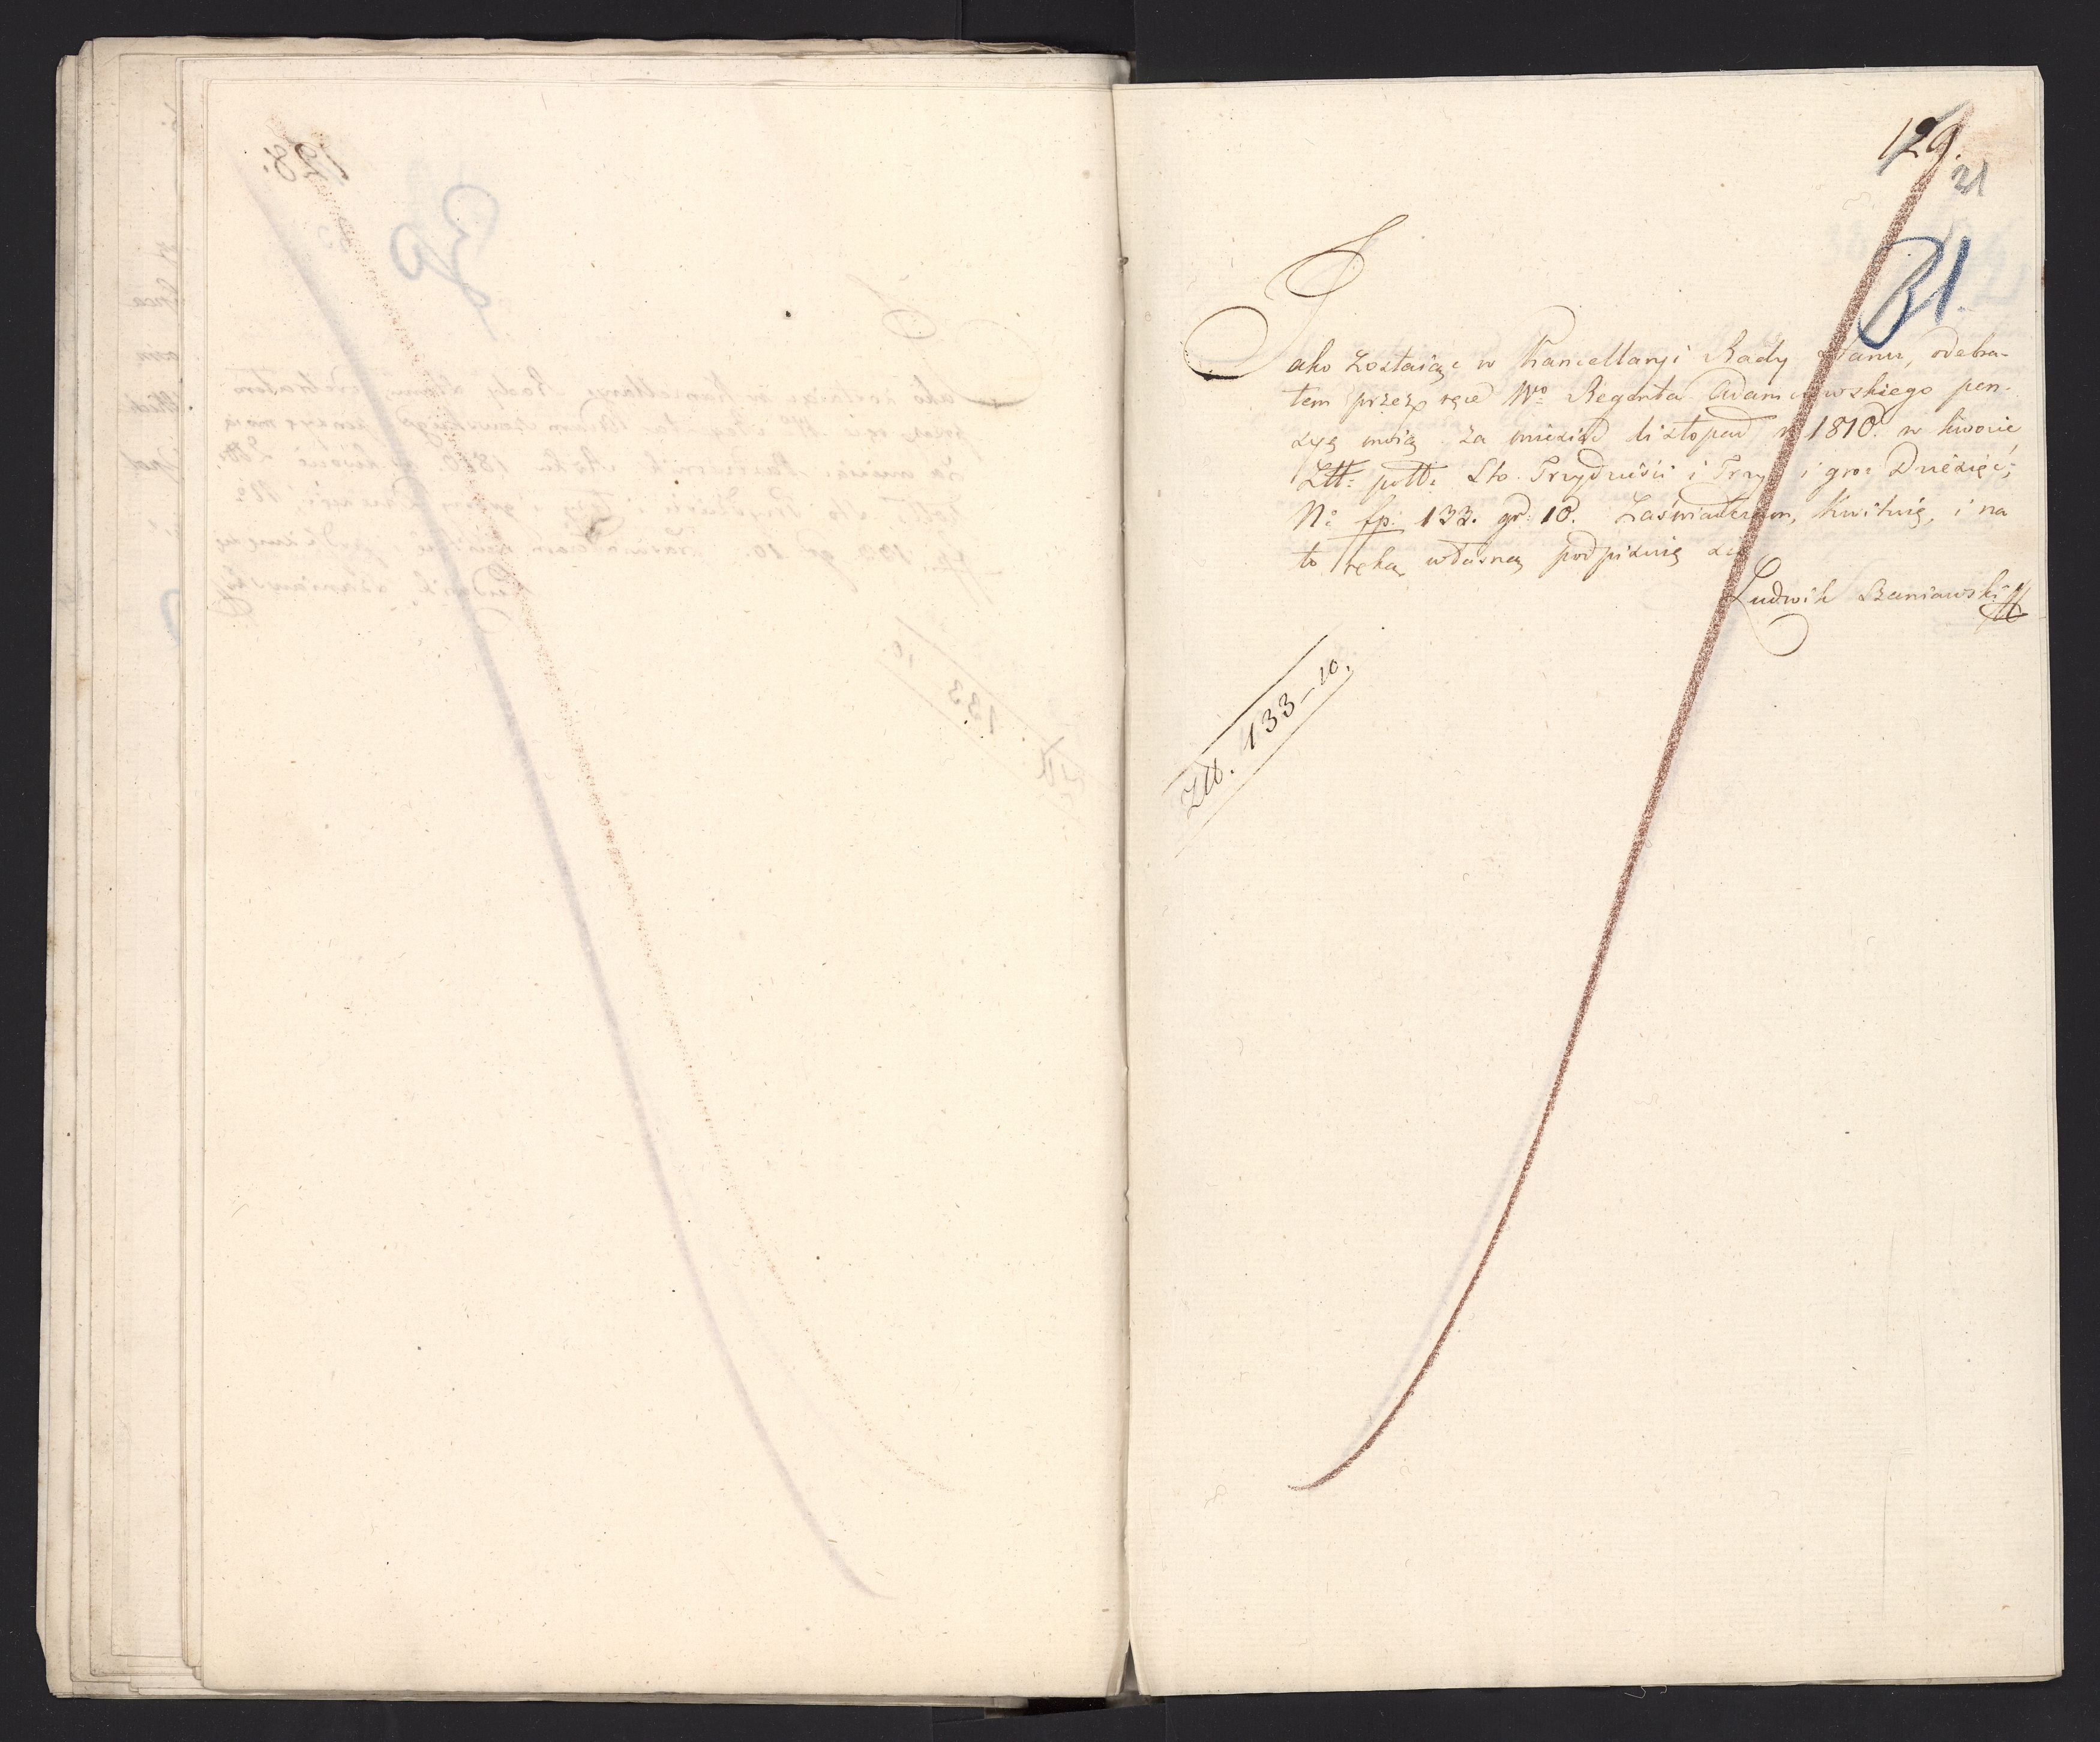 129.
31
31.
Jako zostaiący w Kancellaryi Rady Stanu, odebra-
łem przez ręce Wgo Regenta Adamczewskiego pen-
syą moią za miesiąc listopad r. 1810. w kwocie
Złł: poll: Sto Trzydzieści i Trzy i gro: Dziesięć;
No fp. 133. gr. 10. Zaświadczam, kwituię, i na
to ręką własną podpisuię się
Ludwik Szaniawski
Złł. 133–10.